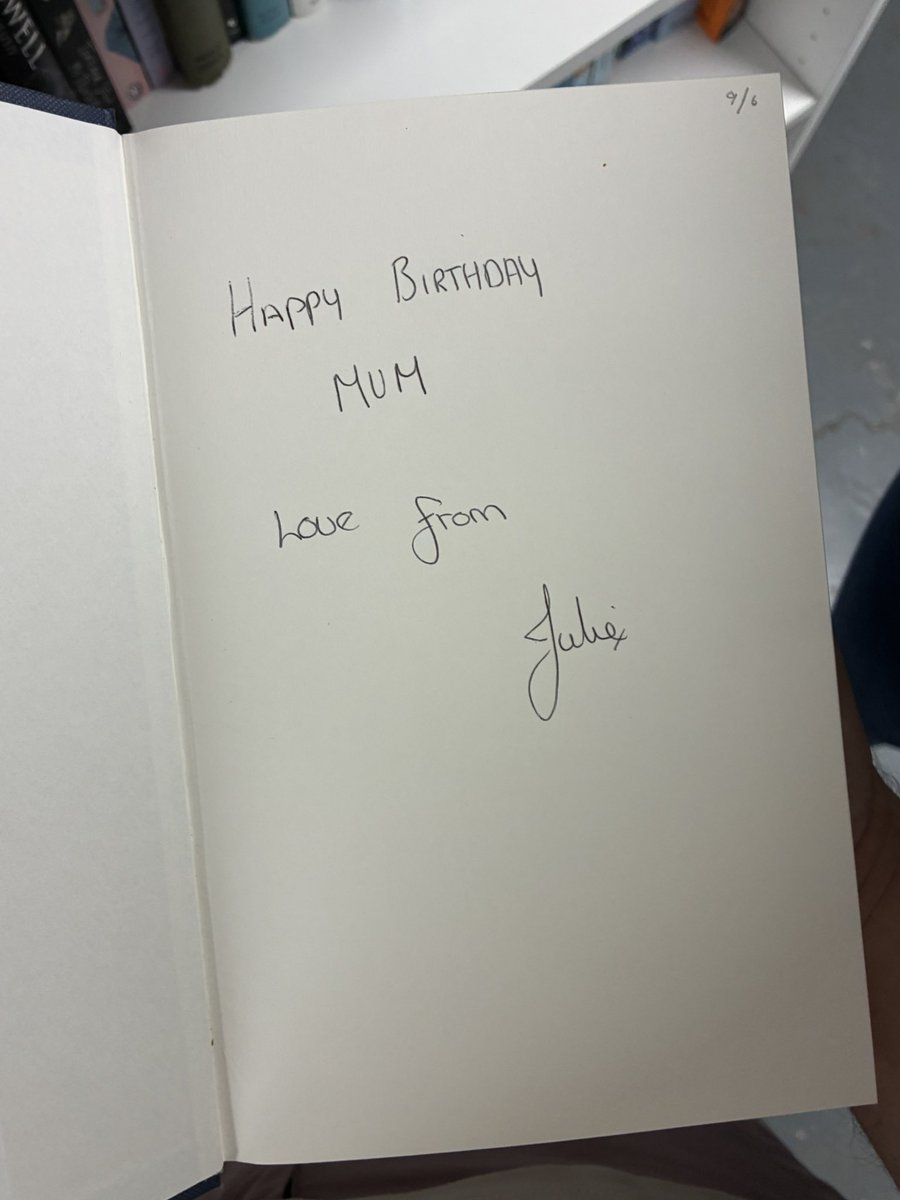 9/6
HAPPY BIRTHDAY
MUM
Love from
Julie x
WELL